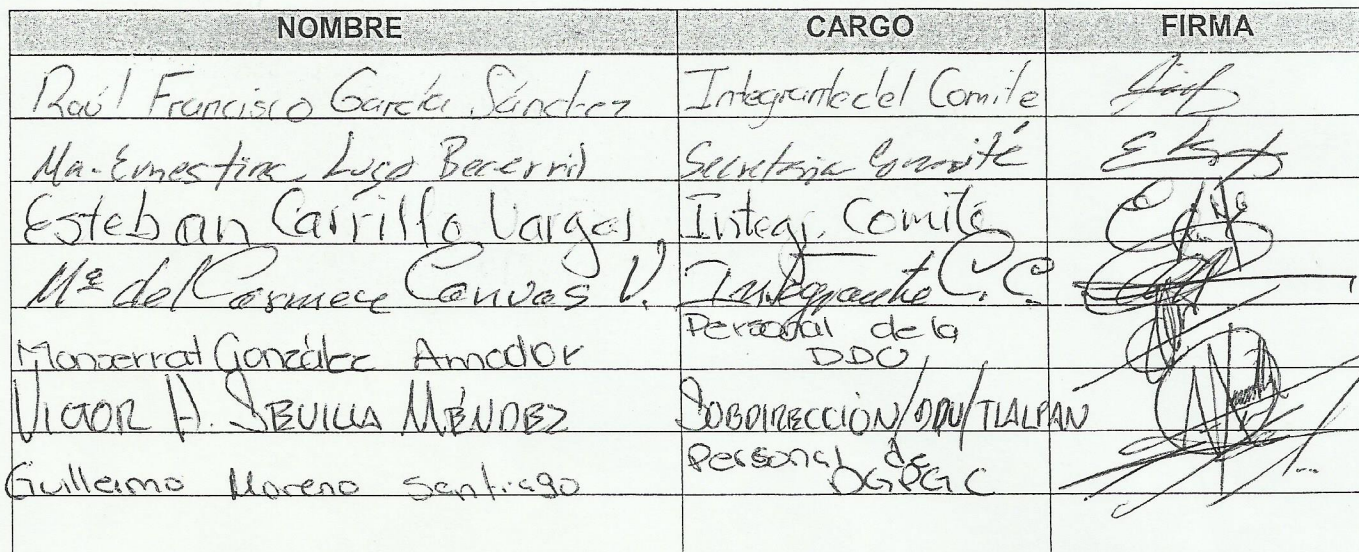 NOMBRE CARGO FIRMA
Raúl Francisco García Sánchez Integrante del Comite
Ma. Ernestina Lugo Becerril Secretaria Comité
Esteban Carrillo Vargas Integr. Comité
Mª del Carmen V. Integrante C.C.
Monserrat González Amador Personal de la
DDU
VICTOR H. SEVILLA MÉNDEZ SUBDIRECCIÓN/DDU/TLALPAN
Guillermo Moreno Santiago Personal de
DGPGC